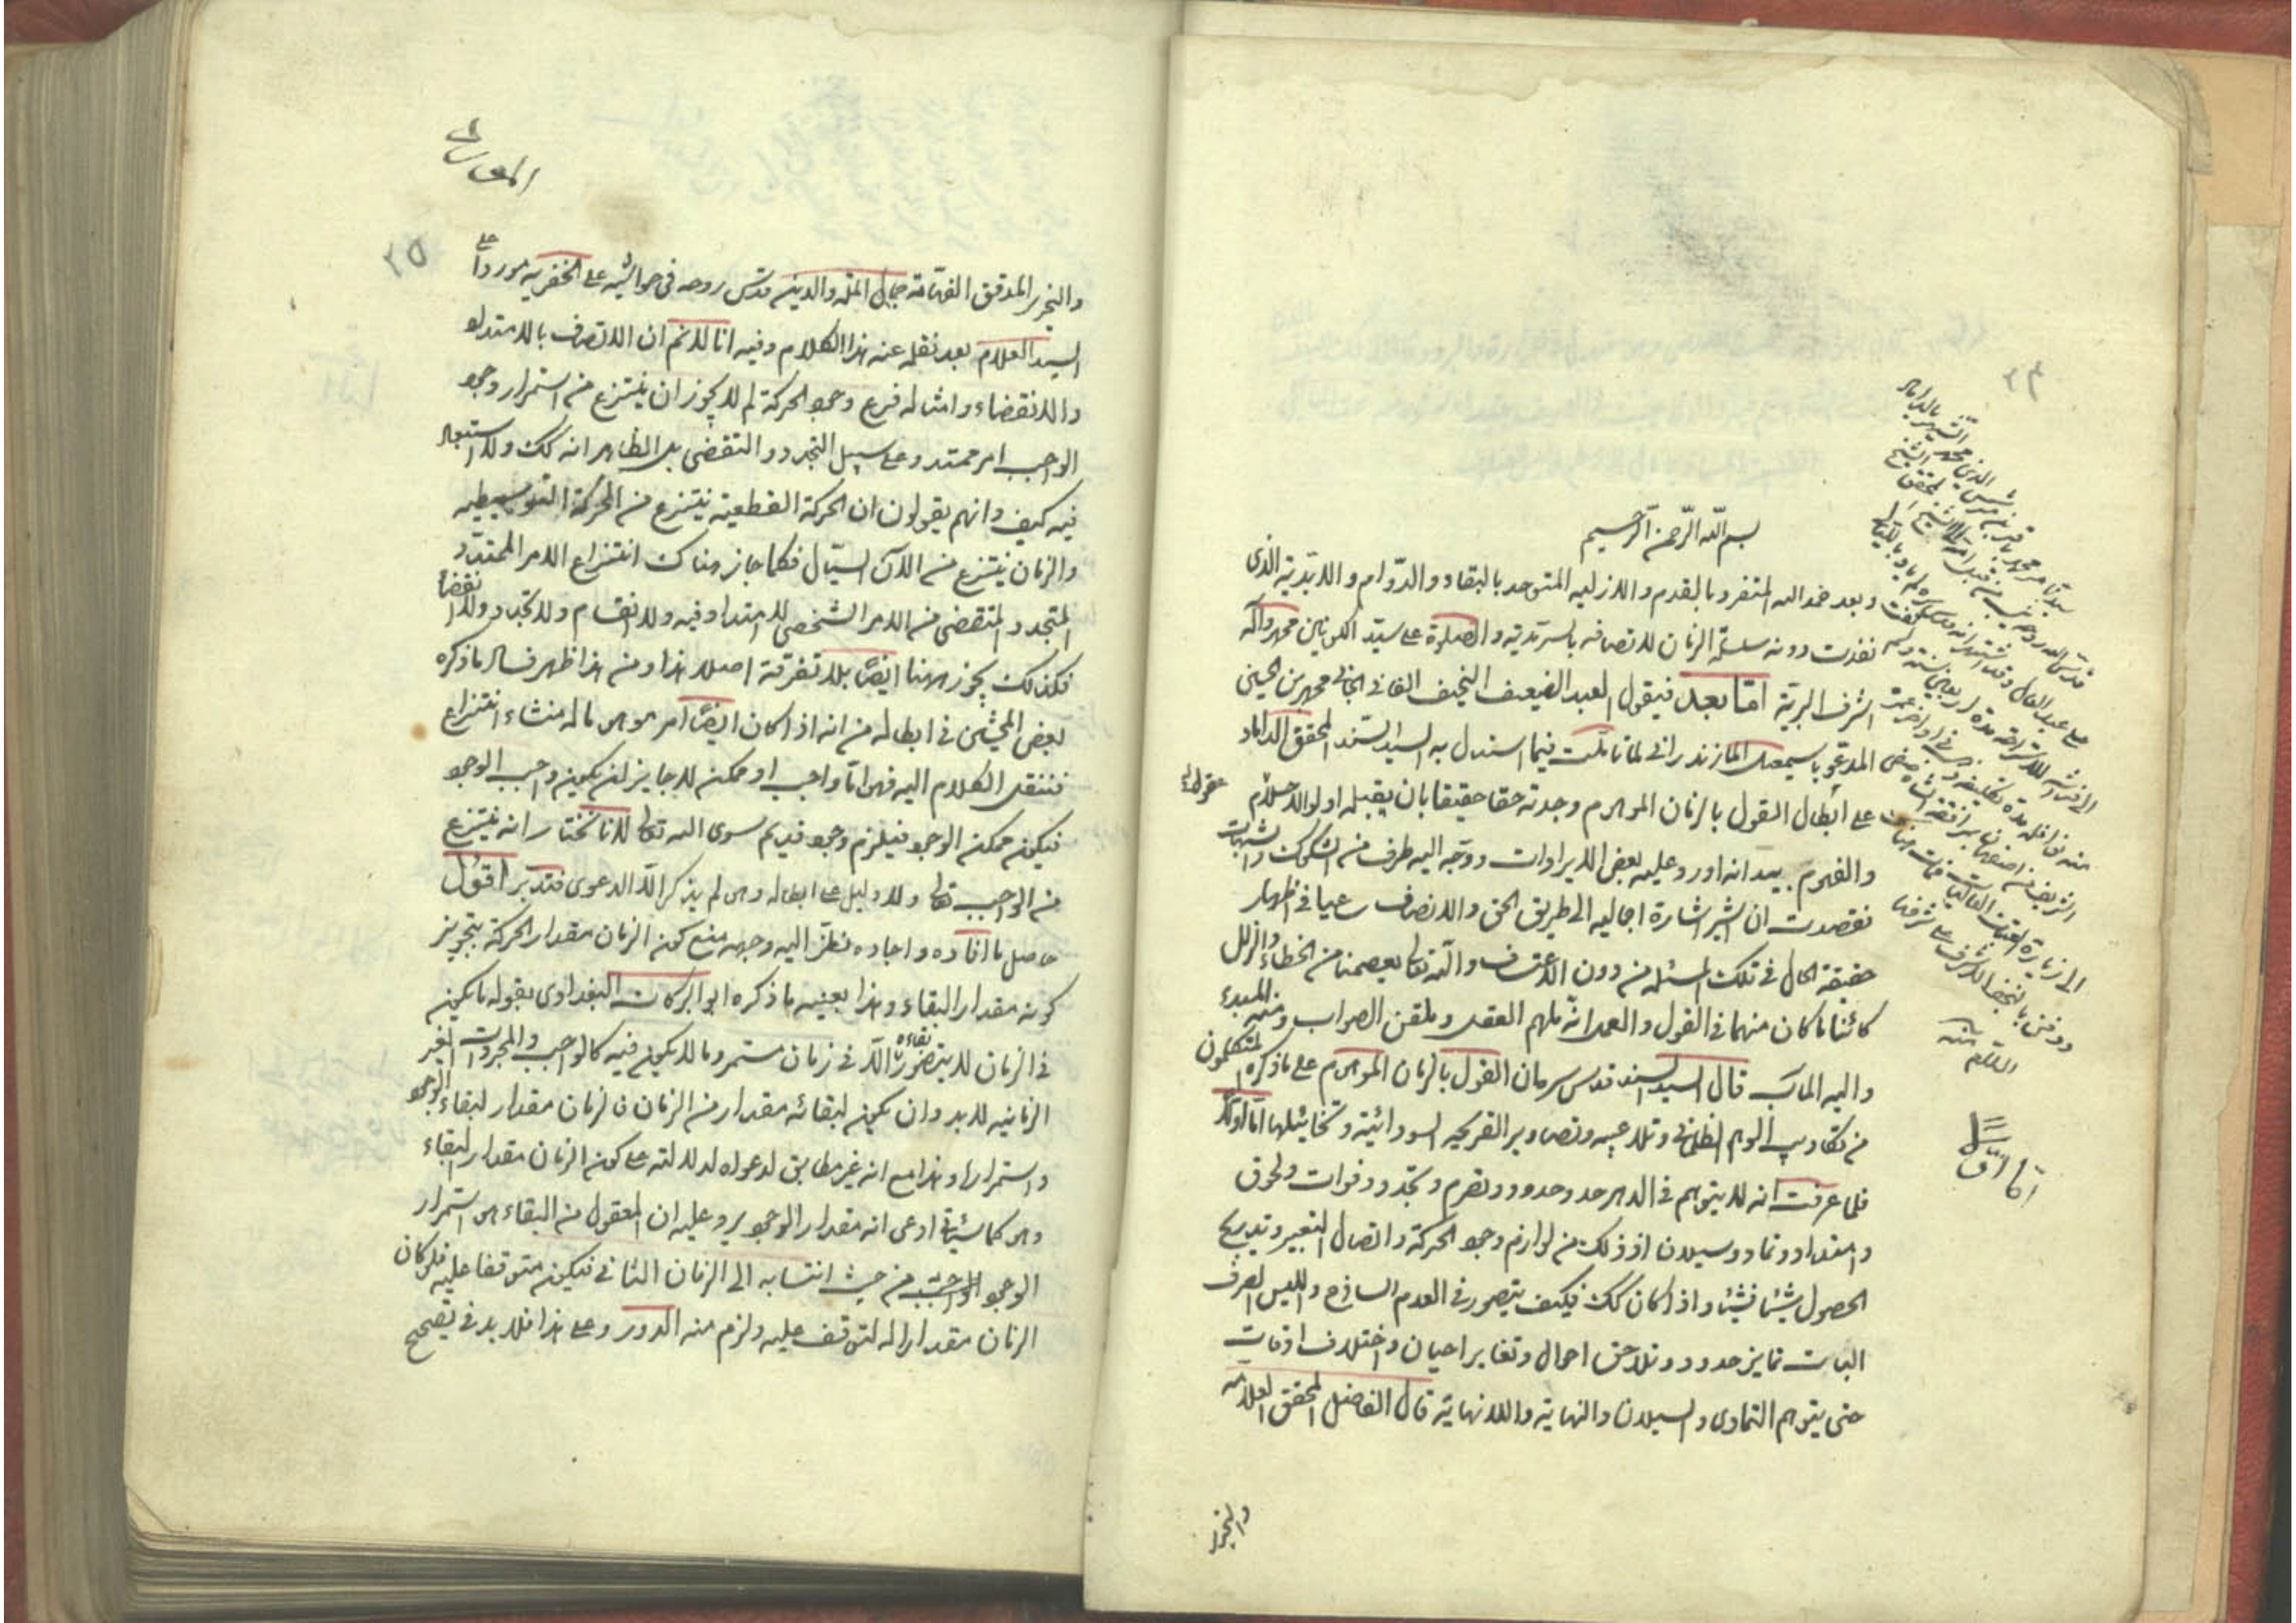 ٢٤
بسم الله الرحمن الرحيم
وبعد حمد الله المتفرد بالقدم والازلية المتوحد بالبقاء والدوام والابدية الذى
نفدت دونه سلسلة الزمان لاتصافه بالسرمدية والصلوة على سيد الكونين محمد وآله
اشرف البرية اما بعد فيقول العبد الضعيف النحيف الفانى الجانى محمد بن الحسين
المدعو باسمعيل المازندرانى لما تاملت فيما استدل به السيد السند المحقق الداماد
على ابطال القول بالزمان الموهوم وجدته حقا حقيقا بان يقبله اولوا الاحلام
والفهوم بيد انه اورد عليه بعض الايرادات ووجه اليه طرف من الشكوك والشبهات
فقصدت ان اشير اشارة اجمالية الى طريق الحق والانصاف سعيا فى اظهار
حقيقة الحال فى تلك المسئلة من دون الاعتساف والله تعالى يعصمنا من الخطاء والزلل
كائنا ما كان منهما فى القول والعمل انه ملهم العقل وملقن الصواب ومنه المبدء
واليه المآب قال السيد السند قدس سره ان القول بالزمان الموهوم على ما ذكره المتكلمون
من تكاذيب الوهم الظلمانى وتلاعيبه وتصاوير القريحة السودائية وتخائيلها اما اولا
فلما عرفت انه لا يتوهم فى الدهر حد وحدود وتصرم وتجدد وفوات ولحوق
وامتداد وتماد وسيلان اذ ذلك من لوازم وجود الحركة واتصال التغير وتدريج
الحصول شيئا فشيئا واذا كان كك فكيف يتصور فى العدم الساذج والليس الصرف
البات تمايز حدود وتلاحق احوال وتغاير احيان واختلاف اوقات
حتى يتوهم التمادى والسيلان والنهاية واللانهاية قال الفاضل المحقق العلامة
والنحرير
اما اولا
٢٥
والنحرير المدقق الفهامة جمال الملة والدين قدس روحه فى حواشيه على الخفرية موردا على
السيد العلام بعد نقله عنه هذا الكلام وفيه انا لا نم ان الاتصاف بالامتداد
والانقضاء وامثاله فرع وجود الحركة لم لا يجوز ان ينتزع من استمرار وجود
الواجب امر ممتد وعلى سبيل التجدد والتقضى بل الظاهر انه كك ولا استبعاد
فيه كيف وانهم يقولون ان الحركة القطعية ينتزع من الحركة التوسطية
والزمان ينتزع من الآن السيال فكلما جاز هناك انتزاع الامر الممتد
المتجدد المتقضى من الامر الشخصى لا امتداد فيه ولا انقسام ولا تجدد ولا انقضاء
فكذلك يجوز ههنا ايضا بلا تفرقة اصلا هذا ومن هذا ظهر فساد ما ذكره
بعض المحشين فى ابطاله من انه اذا كان ايضا امر موهوما له منشاء انتزاع
فننقل الكلام اليه فهو اما واجب او ممكن لا جايز ان يكون واجب الوجود
فيكون ممكن الوجود فيلزم وجود قديم سوى الله تعالى لانا نختار انه ينتزع
من الواجب تعالى ولا دليل على ابطاله وهو لم يذكر الا الدعوى فتدبر اقول
حاصل ما افاده واجاده نظرا اليه وجهه منع كون الزمان مقدار الحركة بتجويز
كونه مقدار البقاء وهذا بعينه ما ذكره ابو البركات البغدادى بقوله ما يكون
فى الزمان لا يتصور بقاءه الا فى زمان مستمر وما لا يكون فيه كالواجب والمجردات الغير
الزمانية لا بد وان يكون لبقائه مقدار من الزمان فالزمان مقدار لبقاء الوجود
واستمراره وهذا مع انه غير مطابق لدعواه لدلالته على كون الزمان مقدار البقاء
وهو كما سيأتى ادعى انه مقدار الوجود يرد عليه ان المعقول من البقاء هو استمرار
الوجود الواجب من حيث انتسابه الى الزمان الثانى فيكون متوقفا عليه فلو كان
الزمان مقدارا له لتوقف عليه ولزم منه الدور وعلى هذا فلا بد فى تصحيح